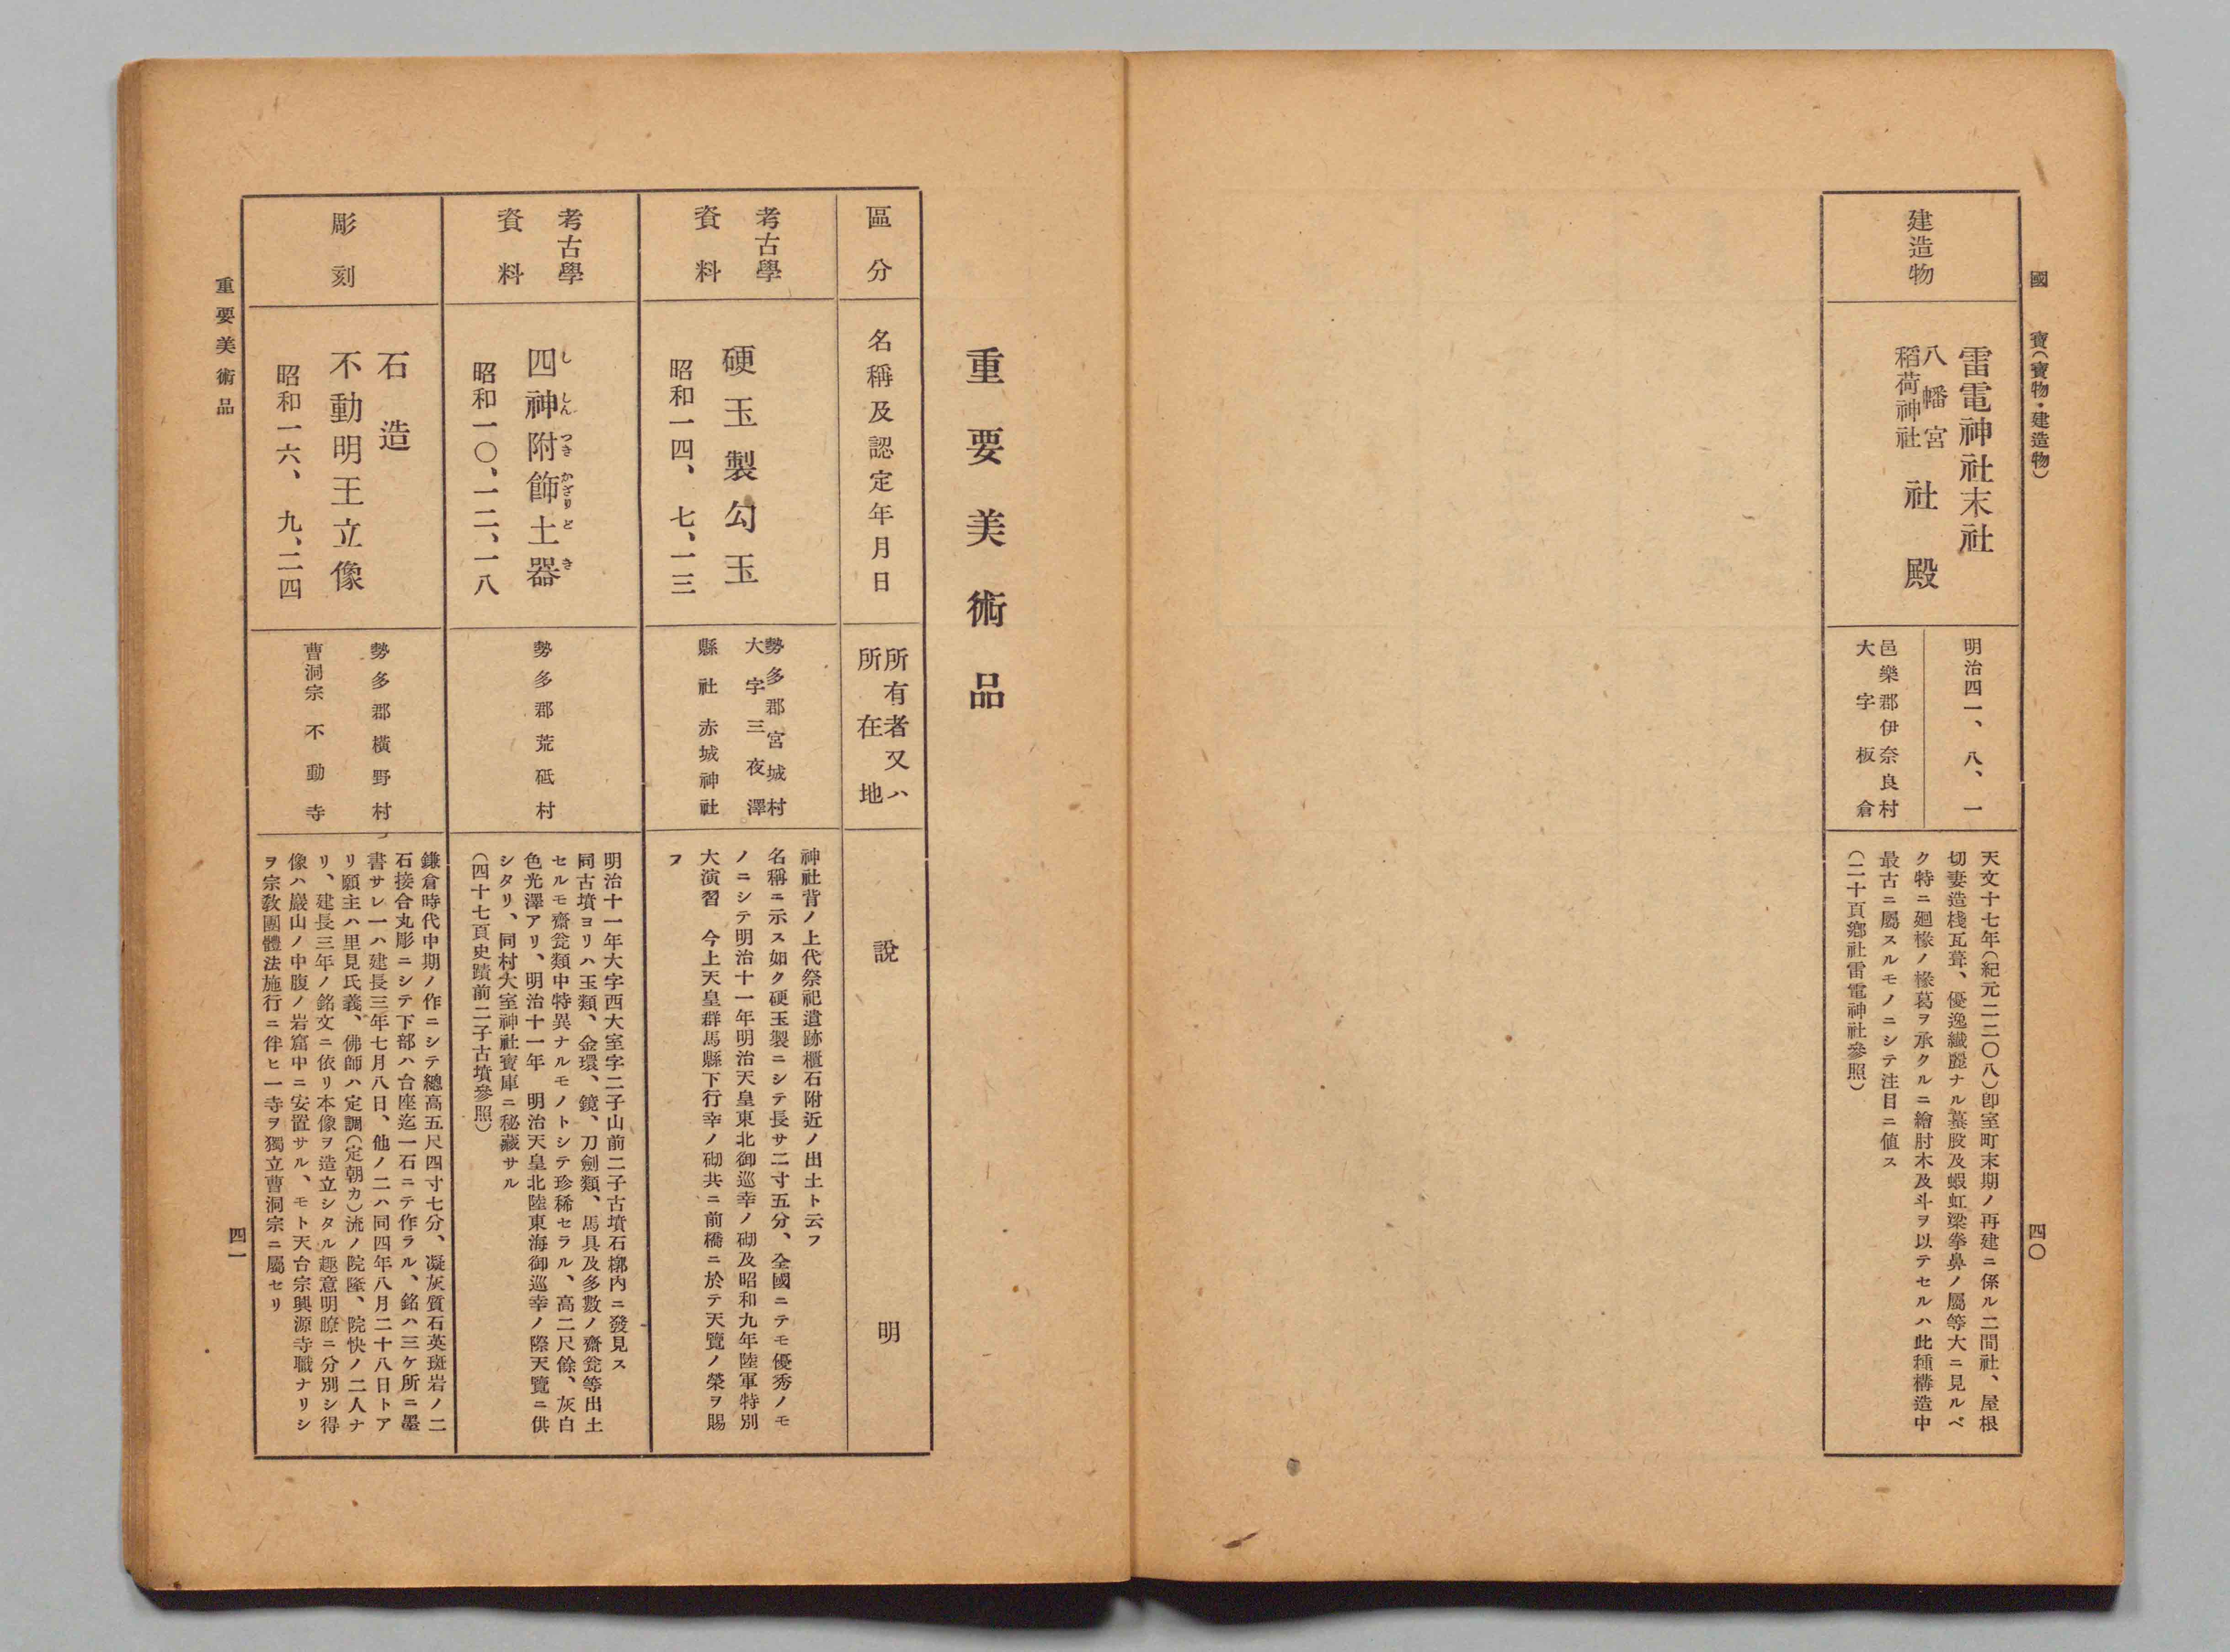 國寶(寶物・建造物)
四〇
建造物
雷電神社末社
八幡宮
稻荷神社
社殿
明治四一、八、一
邑樂郡伊奈良村
大字板倉
天文十七年(紀元二二〇八)卽室町末期ノ再建ニ係ル二間社、屋根
切妻造棧瓦葺、優逸纎麗ナル蟇股及蝦虹梁拳鼻ノ屬等大ニ見ルベ
ク特ニ廻椽ノ椽葛ヲ承クルニ繪肘木及斗ヲ以テセルハ此種構造中
最古ニ屬スルモノニシテ注目ニ値ス
(二十頁鄕社雷電神社參照)
重要美術品
區分
名稱及認定年月日
所有者又ハ
所在地
說明
考古學
資料
硬玉製勾玉
昭和一四、七、一三
勢多郡宮城村
大字三夜澤
縣社赤城神社
神社背ノ上代祭祀遺跡櫃石附近ノ出土ト云フ
名稱ニ示ス如ク硬玉製ニシテ長サ二寸五分、全國ニテモ優秀ノモ
ノニシテ明治十一年明治天皇東北御巡幸ノ砌及昭和九年陸軍特別
大演習　今上天皇群馬縣下行幸ノ砌共ニ前橋ニ於テ天覽ノ榮ヲ賜
フ
考古學
資料
四神附飾土器
し しん つき かざり ど き
昭和一〇、一二、一八
勢多郡荒砥村
明治十一年大字西大室字二子山前二子古墳石槨内ニ發見ス
同古墳ヨリハ玉類、金環、鏡、刀劍類、馬具及多數ノ齋瓮等出土
セルモ齋瓮類中特異ナルモノトシテ珍稀セラル、高二尺餘、灰白
色光澤アリ、明治十一年　明治天皇北陸東海御巡幸ノ際天覽ニ供
シタリ、同村大室神社寶庫ニ秘藏サル
(四十七頁史蹟前二子古墳參照)
彫刻
石造
不動明王立像
昭和一六、九、二四
勢多郡橫野村
曹洞宗不動寺
鎌倉時代中期ノ作ニシテ總高五尺四寸七分、凝灰質石英斑岩ノ二
石接合丸彫ニシテ下部ハ台座迄一石ニテ作ラル、銘ハ三ケ所ニ墨
書サレ一ハ建長三年七月八日、他ノ二ハ同四年八月二十八日トア
リ願主ハ里見氏義、佛師ハ定調(定朝カ)流ノ院隆、院快ノ二人ナ
リ、建長三年ノ銘文ニ依リ本像ヲ造立シタル趣意明瞭ニ分別シ得
像ハ巖山ノ中腹ノ岩窟中ニ安置サル、モト天台宗興源寺職ナリシ
ヲ宗敎團體法施行ニ伴ヒ一寺ヲ獨立曹洞宗ニ屬セリ
重要美術品
四一